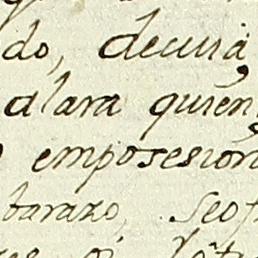 do, decuia
dlara quien
emposesion
barazo, seof